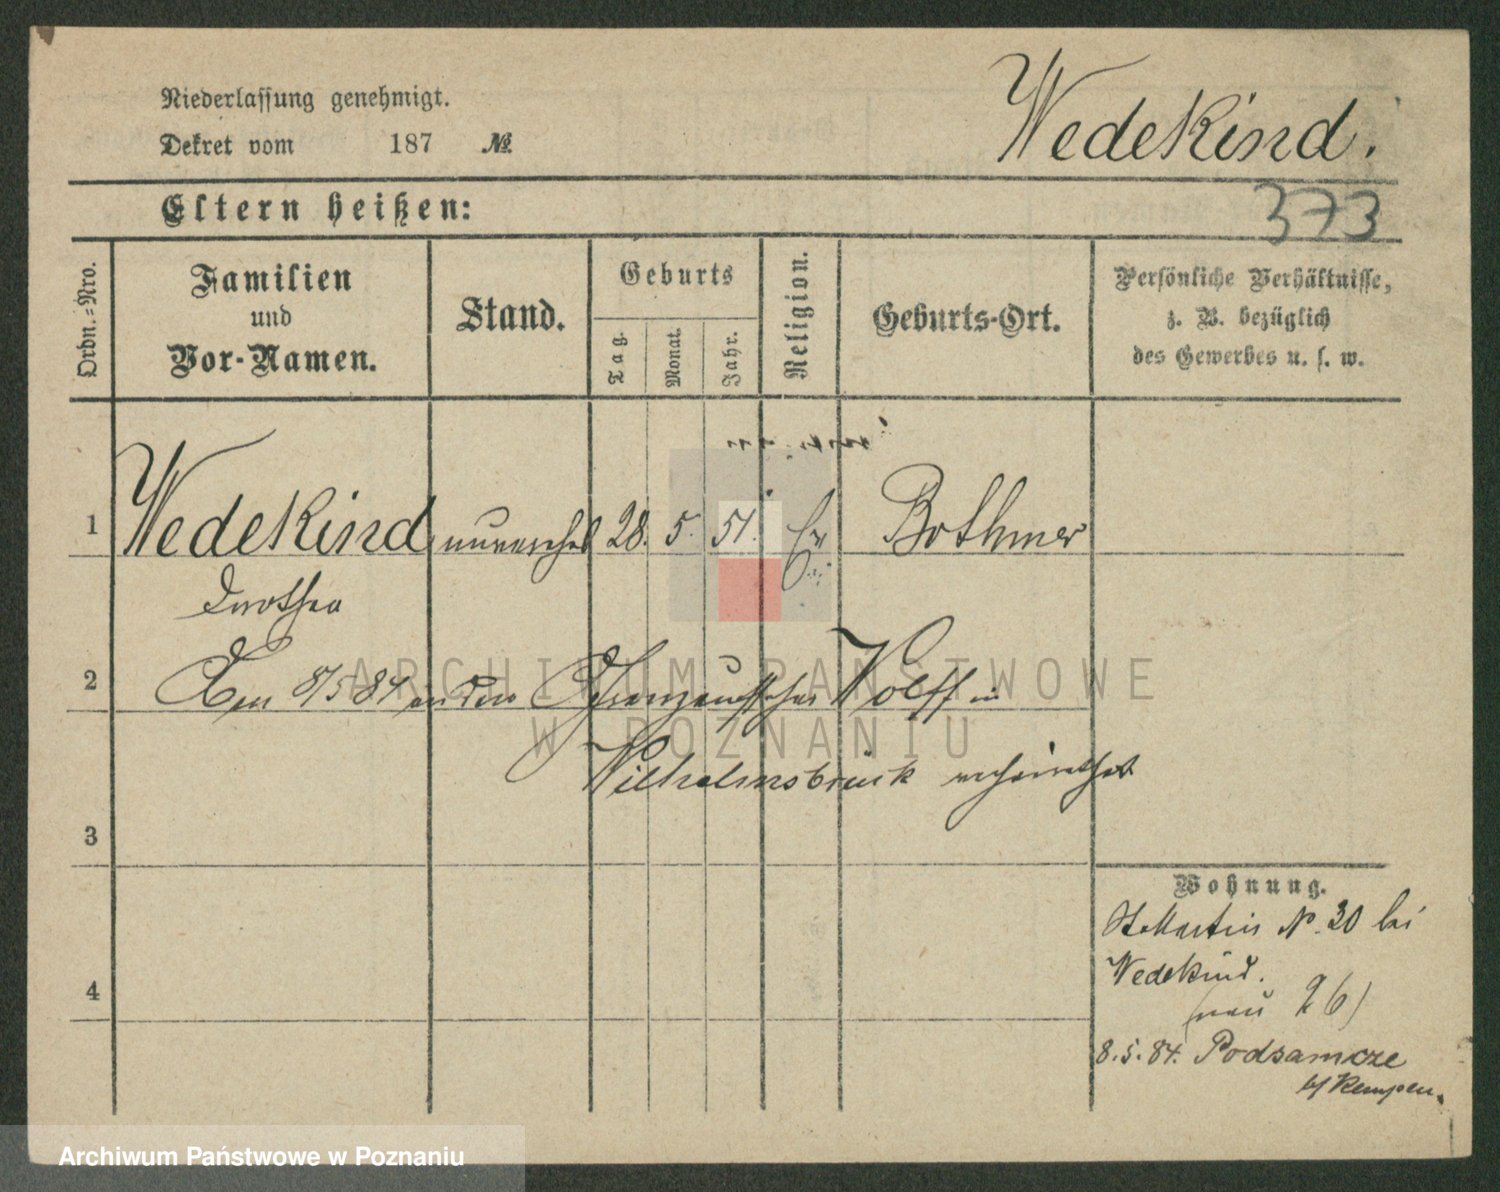 Niederlassung genehmigt.
Dekret vom 187 №
Wedekind.
373
Eltern heißen:
Ordn.=Nro.
Familien
und
Vor-Namen.
Stand.
Geburts
Tag.
Monat.
Jahr.
Religion.
Geburts-Ort.
Persönliche Verhältnisse,
z. B. bezüglich
des Gewerbes u. s. w.
1 Wedekind unverehel 28. 5. 51. Ev Bothmer
Dorothea
2 Am 8/5 84 an den Wolff in
Wilhelmsbrück verheirathet
3
4
Wohnung.
St. Martin N. 30 bei
Wedekind.
(neu 26)
8.5.84. Podsamcze
b/ Kempen.
ARCHIWUM PAŃSTWOWE
W POZNANIU
Archiwum Państwowe w Poznaniu